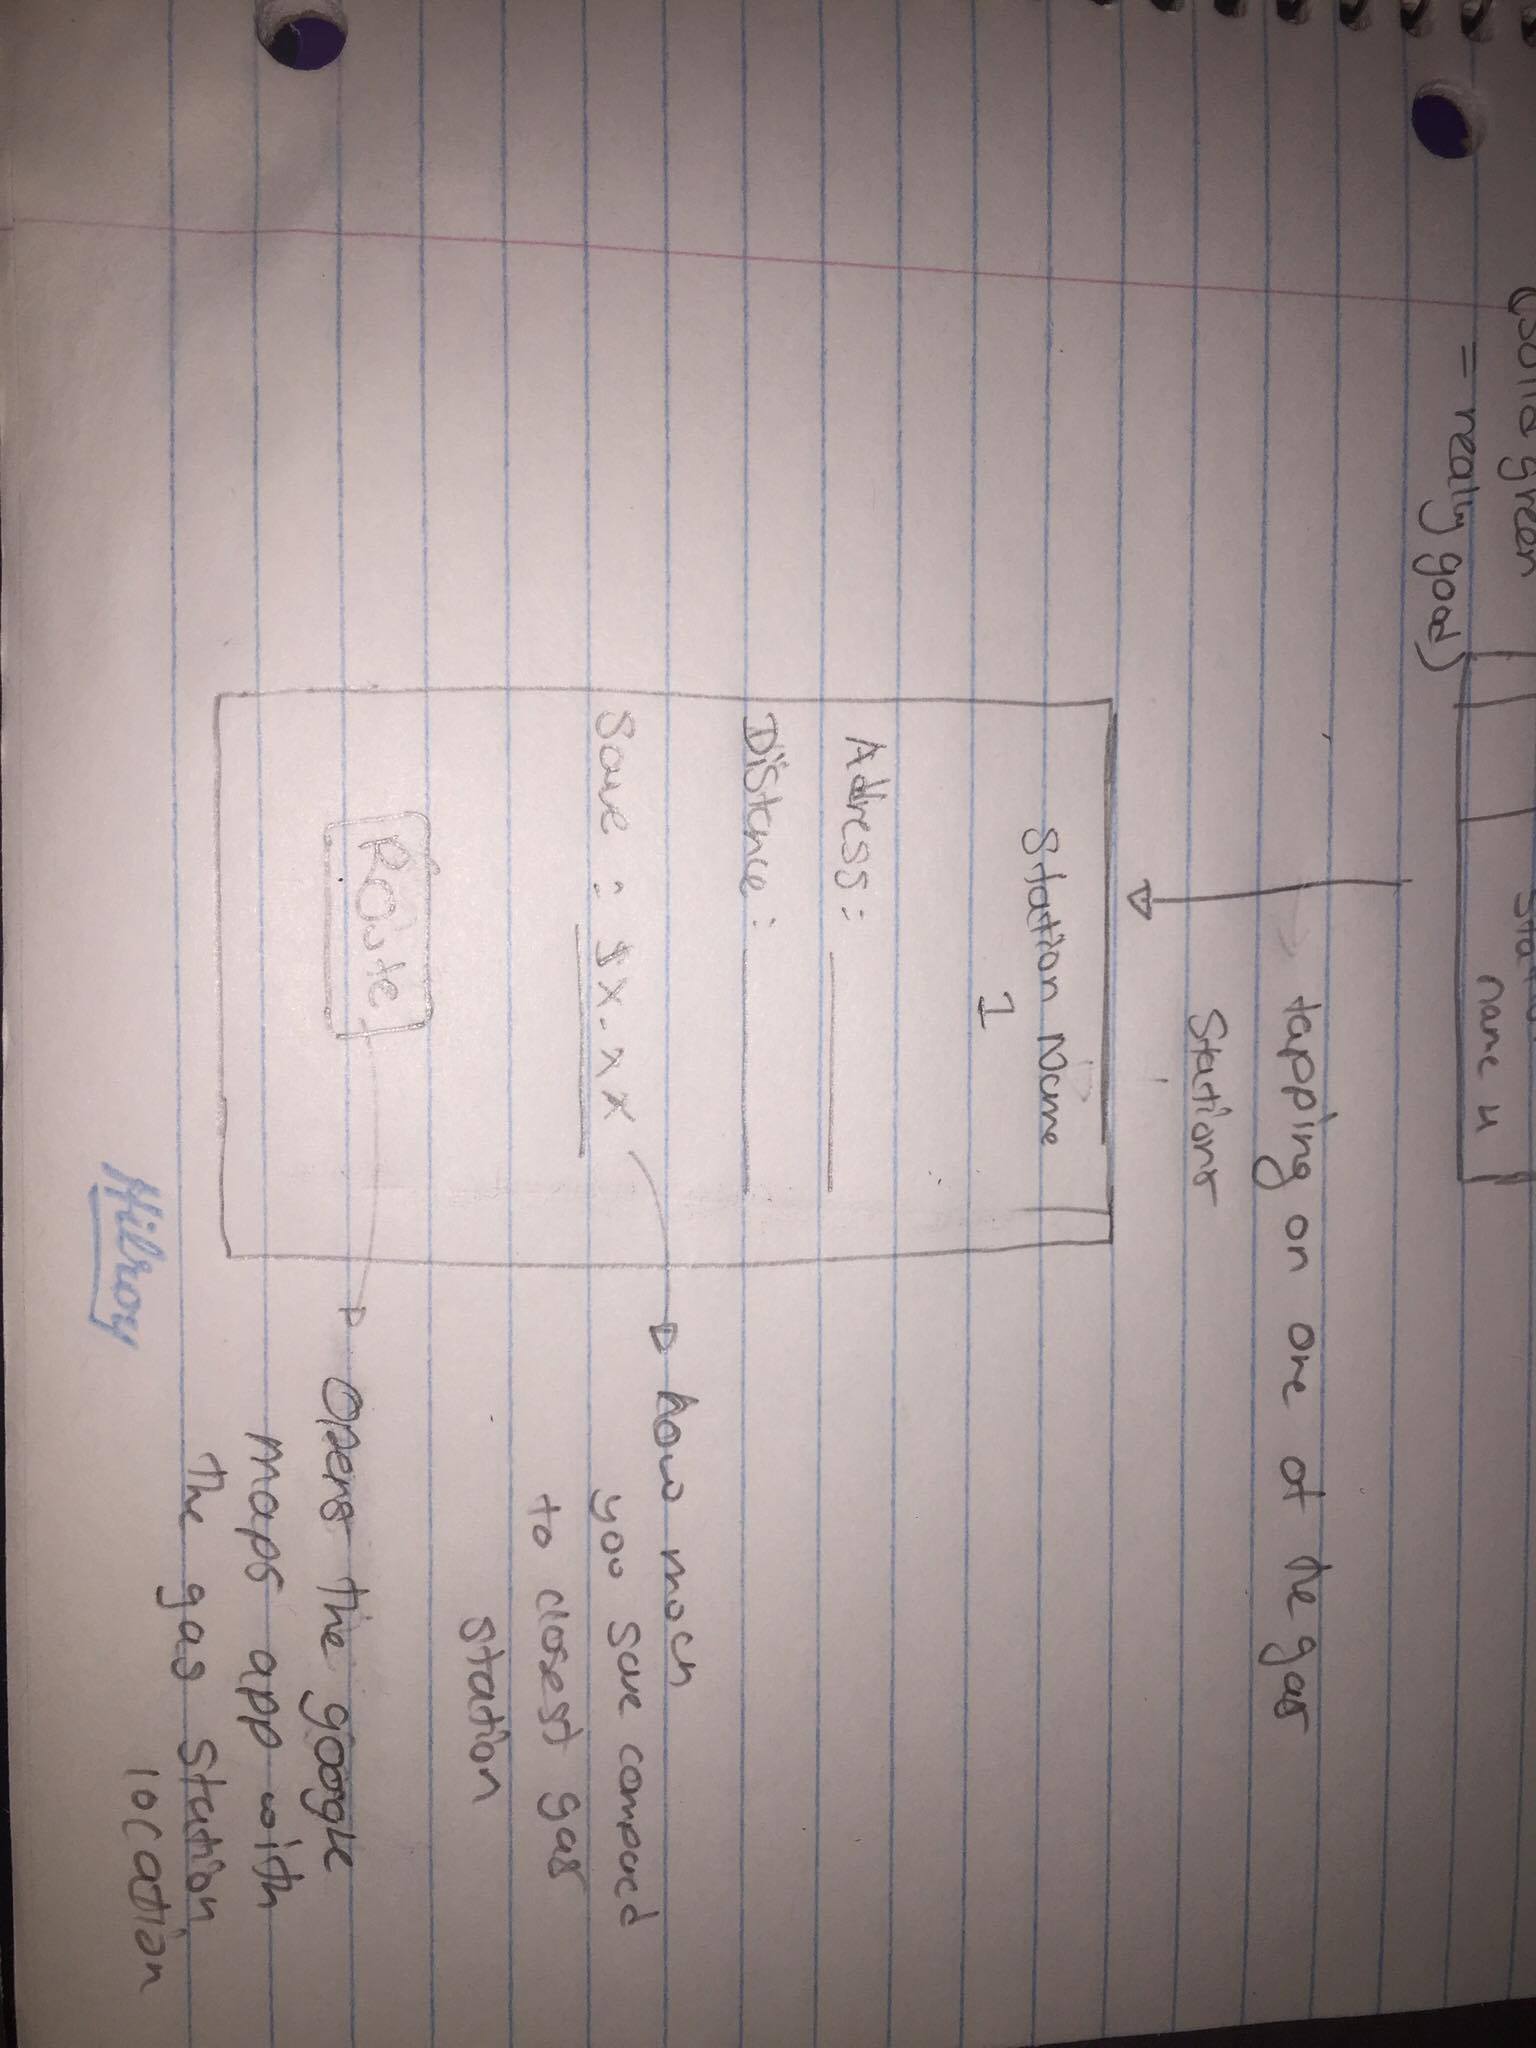 = really good)
name 4
tapping on one of the gas
stations
Station Name
1
Address:
Distance:
Save: $x.xx
how much
you save compared
to closest gas
station
Route
opens the google
maps app with
the gas station
location
Hilroy